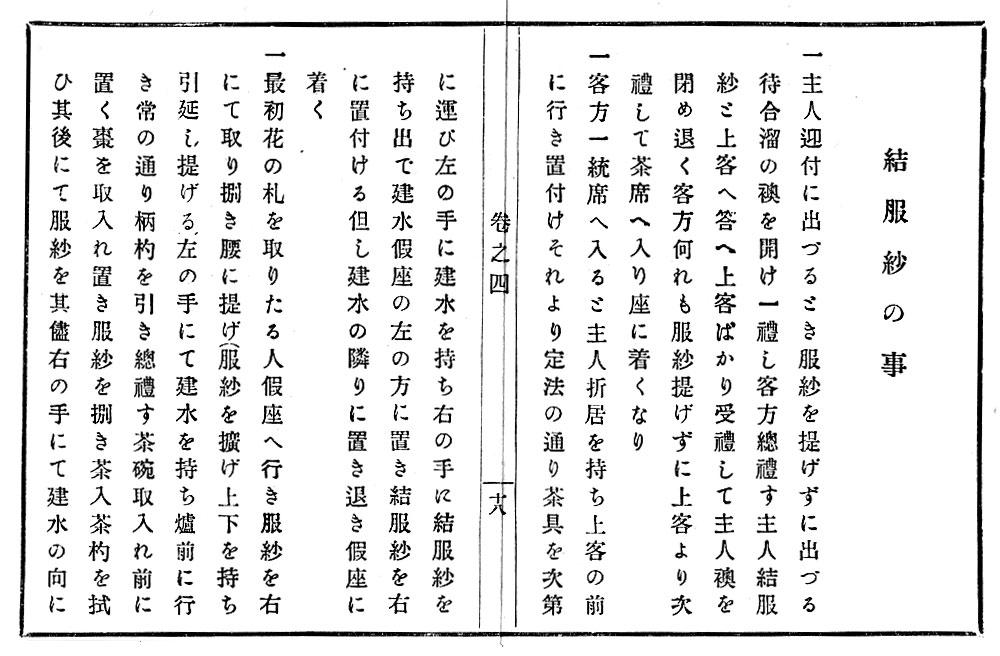 結服紗の事
一主人迎付に出づるとき服紗を提げずに出づる
待合溜の襖を開け一禮し客方總禮す主人結服
紗と上客へ答へ上客ばかり受禮して主人襖を
閉め退く客方何れも服紗提げずに上客より次
禮して茶席へ入り座に着くなり
一客方一統席へ入ると主人折居を持ち上客の前
に行き置付けそれより定法の通り茶具を次第
卷之四
十八
に運び左の手に建水を持ち右の手に結服紗を
持ち出で建水假座の左の方に置き結服紗を右
に置付ける但し建水の隣りに置き退き假座に
着く
一最初花の札を取りたる人假座へ行き服紗を右
にて取り捌き腰に提げ(服紗を擴げ上下を持ち
引延し提げる左の手にて建水を持ち爐前に行
き常の通り柄杓を引き總禮す茶碗取入れ前に
置く棗を取入れ置き服紗を捌き茶入茶杓を拭
ひ其後にて服紗を其儘右の手にて建水の向に